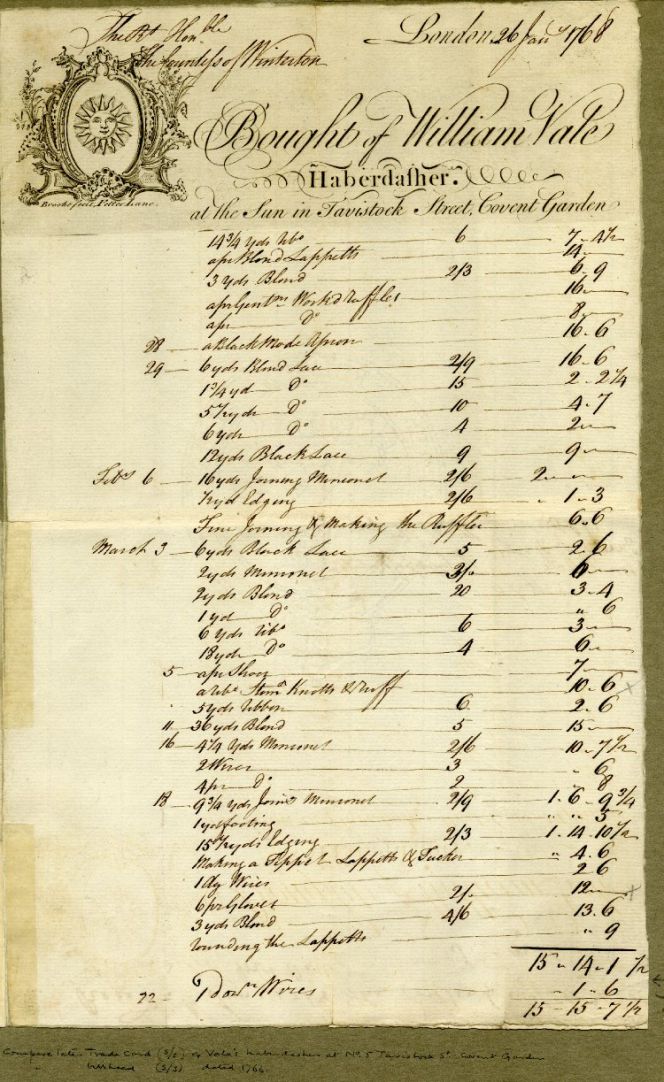 The Rt. Honble
the Countess of Winterton
London, 26 Jany 1768
Bought of William Vale
Haberdasher.
at the Sun in Tavistock Street, Covent Garden
Brooke fecit, Fetter Lane.
14 3/4 yds Ribn 6 7-4 1/2
a pr Blond Lappetts 14-
3 yds Blond 2/3 6-9
a pr Gentms Workd Ruffles 16-
a pr Do 8-
28 a Black Mode Apron 16-6
29 6 yds Blond Lace 2/9 16-6
1 3/4 yd Do 15 2-2 1/4
5 1/2 yds Do 10 4-7
6 yds Do 4 2-
12 yds Black Lace 9 9-
Feby 6 16 yds Joining Minionet 2/6 2-
1/2 yd Edging 2/6 " 1-3
Fine Joining & Making the Ruffles 6-6
March 3 6 yds Black Lace 5 2-6
2 yds Minionet 3/- 6-
2 yds Blond 20 3-4
1 yd Do " 6
6 yds Ribn 6 3-
18 yds Do 4 6-
5 a pr Shoes 7-
a Ribn Stomr Knotts & Ruff 10-6 x
5 yds Ribbon 6 2-6
11 36 yds Blond 5 15-
16 4 1/4 yds Minionet 2/6 10-7 1/2
2 Wires 3 - 6
4 pr Do 2 8
18 9 3/4 yds Joing Minionet 2/9 1-6-9 3/4
1 yd footing " " 5
15 1/2 yds Edging 2/3 1-14-10 1/2
Making a Lappetts & Tucker " 4-6
1 Wires 2 6
6 pr Gloves 2/- 12- x
3 yds Blond 4/6 13-6
rounding the Lappetts " 9
15-14-1 1/2
22 1 dozn Wires -1-6
15-15-7 1/2
Compare later Trade Card of Vale's haberdasher at No 5 Tavistock St. Covent Garden
" billhead dated 1766